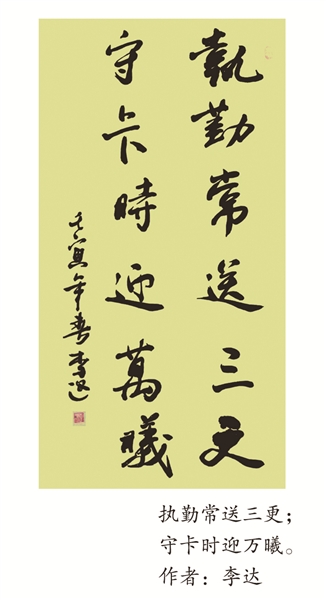 執勤常送三更
守卡時迎萬曦
壬寅年春李达
执勤常送三更；
守卡时迎万曦。
作者：李达